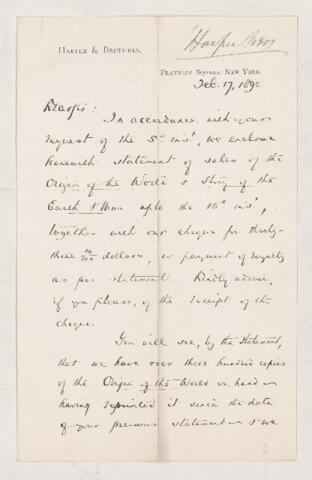 Harper Bros
HARPER & BROTHERS.
FRANKLIN SQUARE, NEW YORK.
Feb. 17, 1890
Dear Sir:
In accordance with yours
request of the 5th inst, we enclose
herewith statement of sales of the
Origin of the World & Story of the
Earth & Man up to the 15th inst,
together with our cheque for thirty-
three dollars, in payment of royalty
as per statement. Kindly advise,
if you please, of the receipt of the
cheque.
You will see, by the statement,
that we have over three hundred copies
of the Origin of the World on hand
having reprinted it since the date
of your previous statement & we